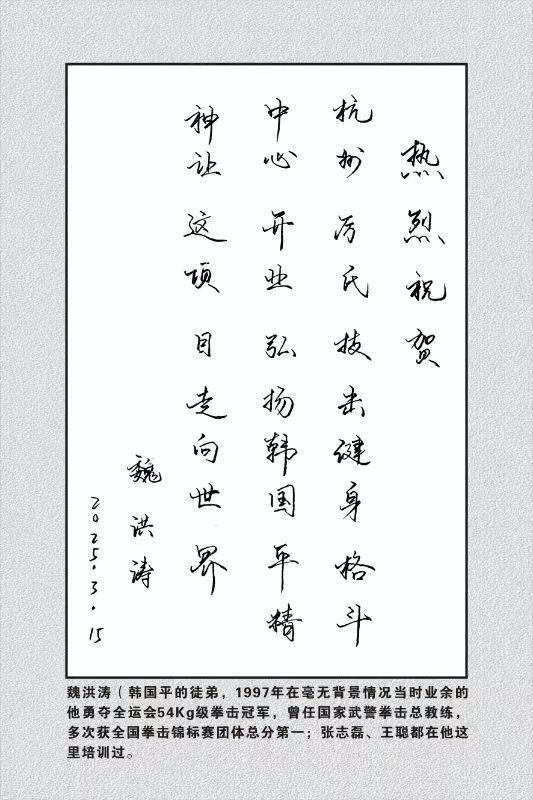 热烈祝贺
杭州厉氏技击健身格斗
中心开业弘扬韩国平精
神让这项目走向世界
魏洪涛
2025.3.15
魏洪涛（韩国平的徒弟，1997年在毫无背景情况当时业余的
他勇夺全运会54Kg级拳击冠军，曾任国家武警拳击总教练，
多次获全国拳击锦标赛团体总分第一；张志磊、王聪都在他这
里培训过。